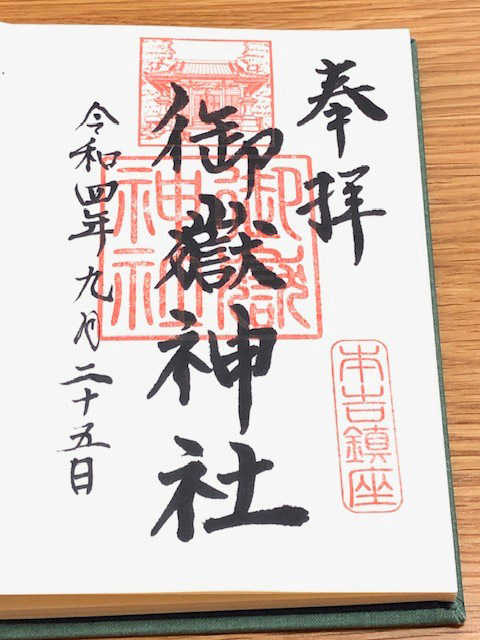 奉拝
本吉鎮座
御嶽神社
御嶽
神社
令和四年九月二十五日